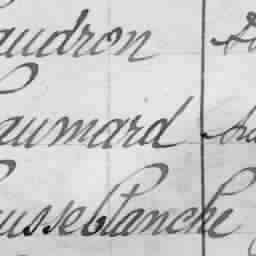 audron
aumard
ausseblanche